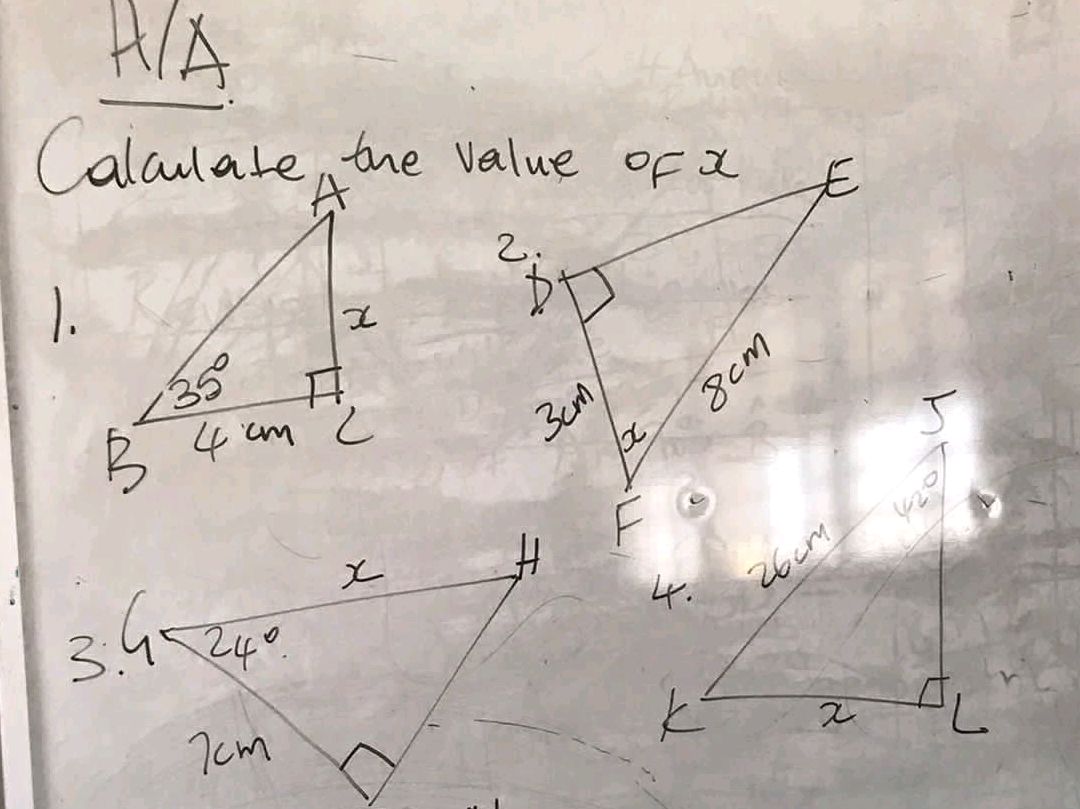 H/A
Calculate the value of x
1.
A
x
35°
B
4 cm
C
2.
D
E
3cm
8cm
x
F
3.
G
x
H
24°
7cm
4.
J
42°
26cm
K
x
L